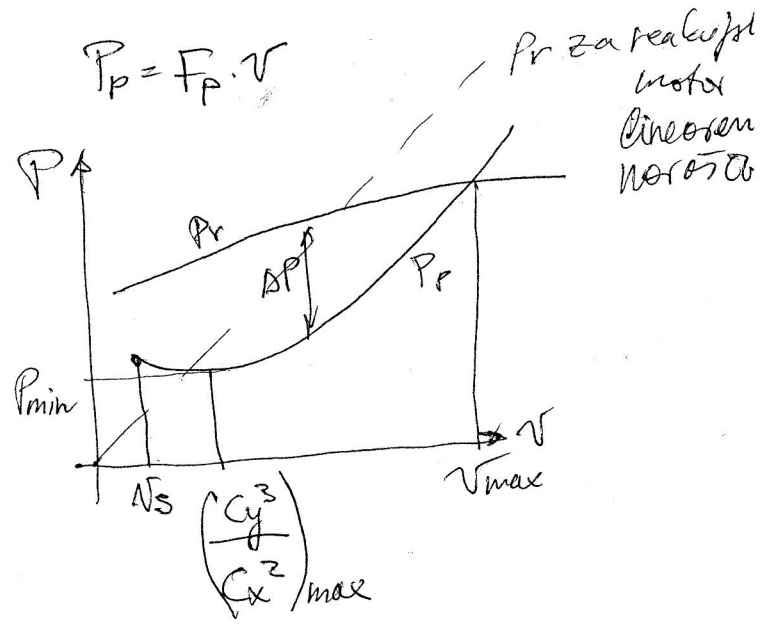 P_p = F_p · v
Pr za reakcijski
motor
linearen
narašča
P
Pr
ΔP
P_p
Pmin
v
vs
(Cy³/Cx²)max
vmax